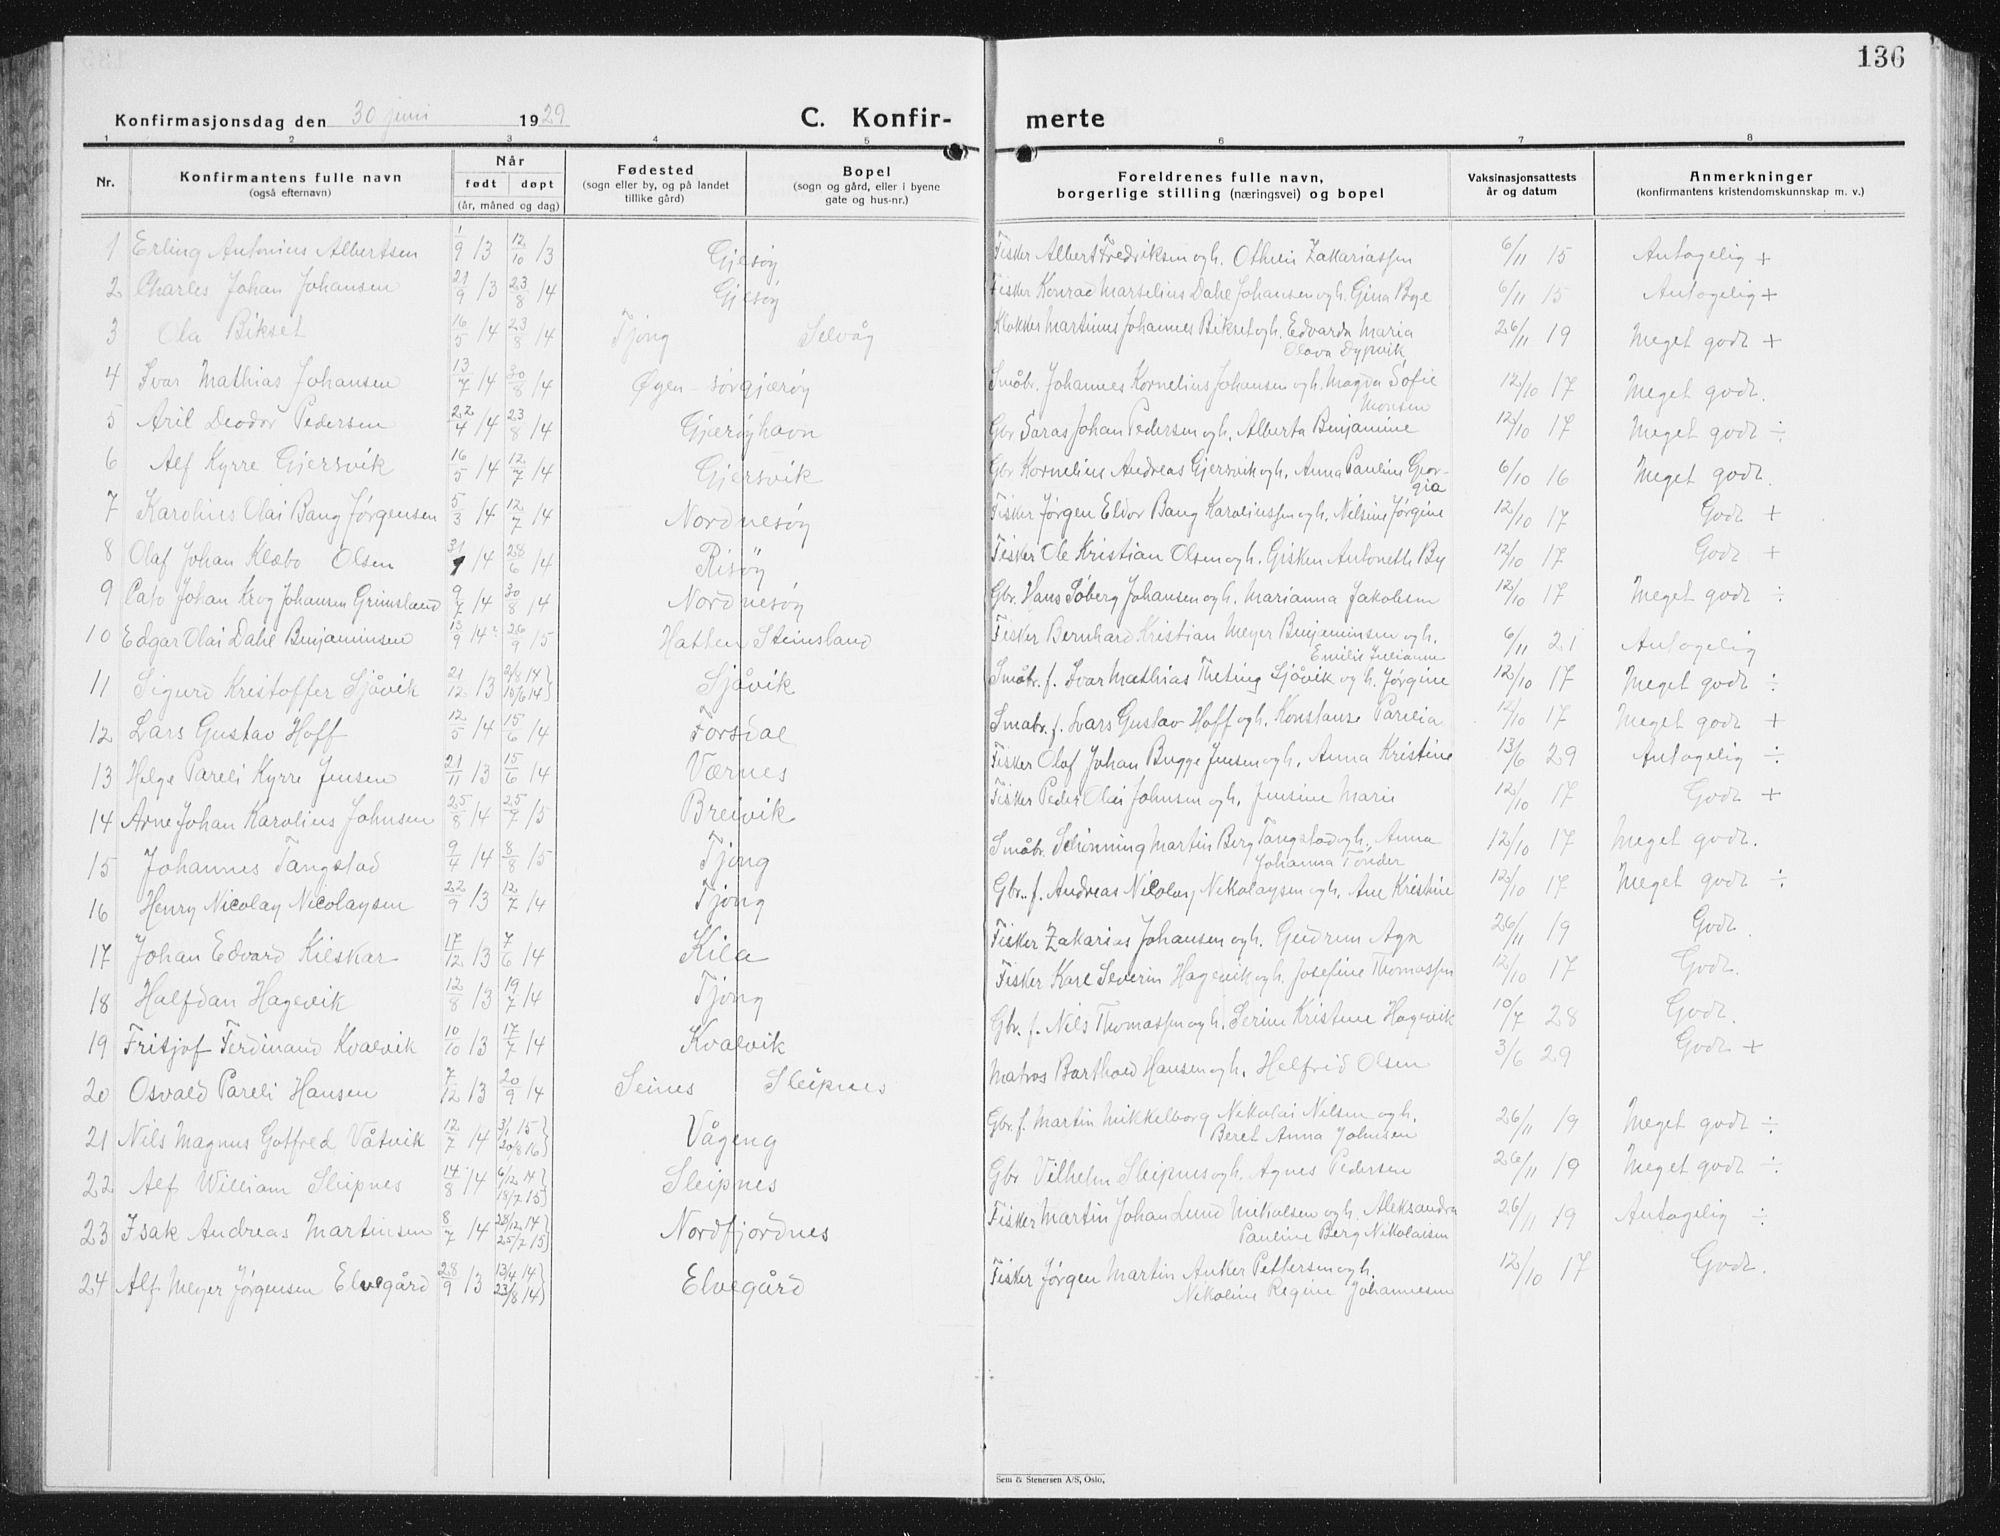 136
Konfirmasjonsdag den 30 juni 1929 C. Konfir- merte
1 2 3 4 5 6 7 8
Nr. Konfirmantens fulle navn (også efternavn) Når født døpt (år, måned og dag) Fødested (sogn eller by, og på landet tillike gård) Bopel (sogn og gård, eller i byene gate og hus-nr.) Foreldrenes fulle navn, borgerlige stilling (næringsvei) og bopel Vaksinasjonsattests år og datum Anmerkninger (konfirmantens kristendomskunnskap m. v.)
1 Erling Antonius Albertsen 1/9 13 12/10 13 Gjesöy Fisker Albert Fredriksen og h. Othrei Zakariassen 6/11 15 Antagelig +
2 Charles Johan Johansen 21/9 13 23/8 14 Gjesöy Fisker Konrad Marselius Dahl Johansen og h. Gina Bye 6/11 15 Antagelig +
3 Ola Bikset 16/5 14 23/8 14 Tjong Selvåg Klokker Martinus Johannes Bikset og h. Edvarda Maria
Olava Dypvik 26/11 19 Meget godt +
4 Ivar Mathias Johansen 13/7 14 30/8 14 Øyen - sørgjærøy Småbr. Johannes Kornelius Johansen og h. Magda Sofie
Monsen 12/10 17 Meget godt.
5 Aril Deodor Pedersen 22/4 14 23/8 14 Gjærøyhavn Gbr Saras Johan Pedersen og h. Alberta Benjamine 12/10 17 Meget godt ÷
6 Alf Kyrre Gjersvik 16/5 14 12/7 14 Gjersvik Gbr Kornelius Andreas Gjersvik og h. Anna Pauline Geor-
gia 6/10 16 Meget godt.
7 Karolius Olai Bang Jørgensen 5/3 14 12/7 14 Nordnesøy Fisker Jørgen Eldor Bang Karoliussen og h. Nilsine Jørgine 12/10 17 Godt +
8 Olaf Johan Klæbo Olsen 31/1 14 28/6 14 Risöy Fisker Ole Kristian Olsen og h. Gisken Antonette By 12/10 17 Godt +
9 Cato Johan Krog Johansen Grimsland 9/7 14 30/8 14 Nordnesöy Gbr. Hans Söberg Johansen og h. Marianna Jakobsen 12/10 17 Meget godt ÷
10 Edgar Olai Dahl Benjaminsen 13/9 14 26/9 15 Hatten Steinsland Fisker Bernhard Kristian Meyer Benjaminsen og h.
Emilie Julianne 6/11 21 Antagelig
11 Sigurd Kristoffer Sjåvik 21/12 13 2/8 14 10/6 14 Sjåvik Småbr. f. Ivar Mathias Theting Sjåvik og h. Jørgine 12/10 17 Meget godt ÷
12 Lars Gustav Hoff 12/5 14 15/6 14 Forsdal Småbr. f. Lars Gustav Hoff og h. Konstanse Parelia 12/10 17 Meget godt +
13 Helge Pareli Kyrre Jensen 21/11 13 15/6 14 Værnes Fisker Olaf Johan Bugge Jensen og h. Anna Kristine 13/6 29 Antagelig ÷
14 Arne Johan Karolius Johnsen 25/8 14 25/7 15 Breivik Fisker Peder Olai Johnsen og h. Jensine Marie 12/10 17 Godt +
15 Johannes Tangstad 9/4 14 8/8 15 Tjong Småbr. Schönning Martin Berg Tangstad og h. Anna
Johanna Tönder 12/10 17 Meget godt.
16 Henry Nicolay Nicolaysen 22/9 13 12/7 14 Tjong Gbr. f. Andreas Nicolay Nikolaysen og h. Ane Kristine 12/10 17 Meget godt ÷
17 Johan Edvard Kilskar 17/12 13 7/6 14 Kila Fisker Zakarias Johansen og h. Gudrun 26/11 19 Godt.
18 Halfdan Hagevik 12/8 13 19/7 14 Tjong Fisker Karl Severin Hagevik og h. Josefine Thomassen 12/10 17 Godt.
19 Fritjof Ferdinand Kvalvik 10/10 13 17/7 14 Kvalvik Gbr. f. Nils Thomassen og h. Serine Kristine Hagevik 10/7 28 Godt.
20 Osvald Pareli Hansen 7/12 13 20/9 14 Seines Sleipnes Matros Barthold Hansen og h. Helfrid Olsen 3/6 29 Godt +
21 Nils Magnus Gotfred Våtvik 12/7 14 3/1 15 20/8 16 Vågeng Gbr. f. Martin Mikkelborg Nikolai Nilsen og h.
Beret Anna Johnsen 26/11 19 Meget godt ÷
22 Alf William Sleipnes 14/8 14 6/12 14 18/7 15 Sleipnes Gbr Vilhelm Sleipnes og h. Agnes Pedersen 26/11 19 Meget godt ÷
23 Isak Andreas Martinsen 8/7 14 28/12 14 25/7 15 Nordfjordnes Fisker Martin Johan Lund Mikalsen og h. Aleksandra
Pauline Berg Nikolaisen 26/11 19 Antagelig ÷
24 Alf Meyer Jørgensen Elvegård 28/9 13 13/4 14 23/8 14 Elvegård Fisker Jørgen Martin Anker Pettersen og h.
Nikoline Regine Johannesen 12/10 17 Godt.
Sem & Stenersen A/S, Oslo.